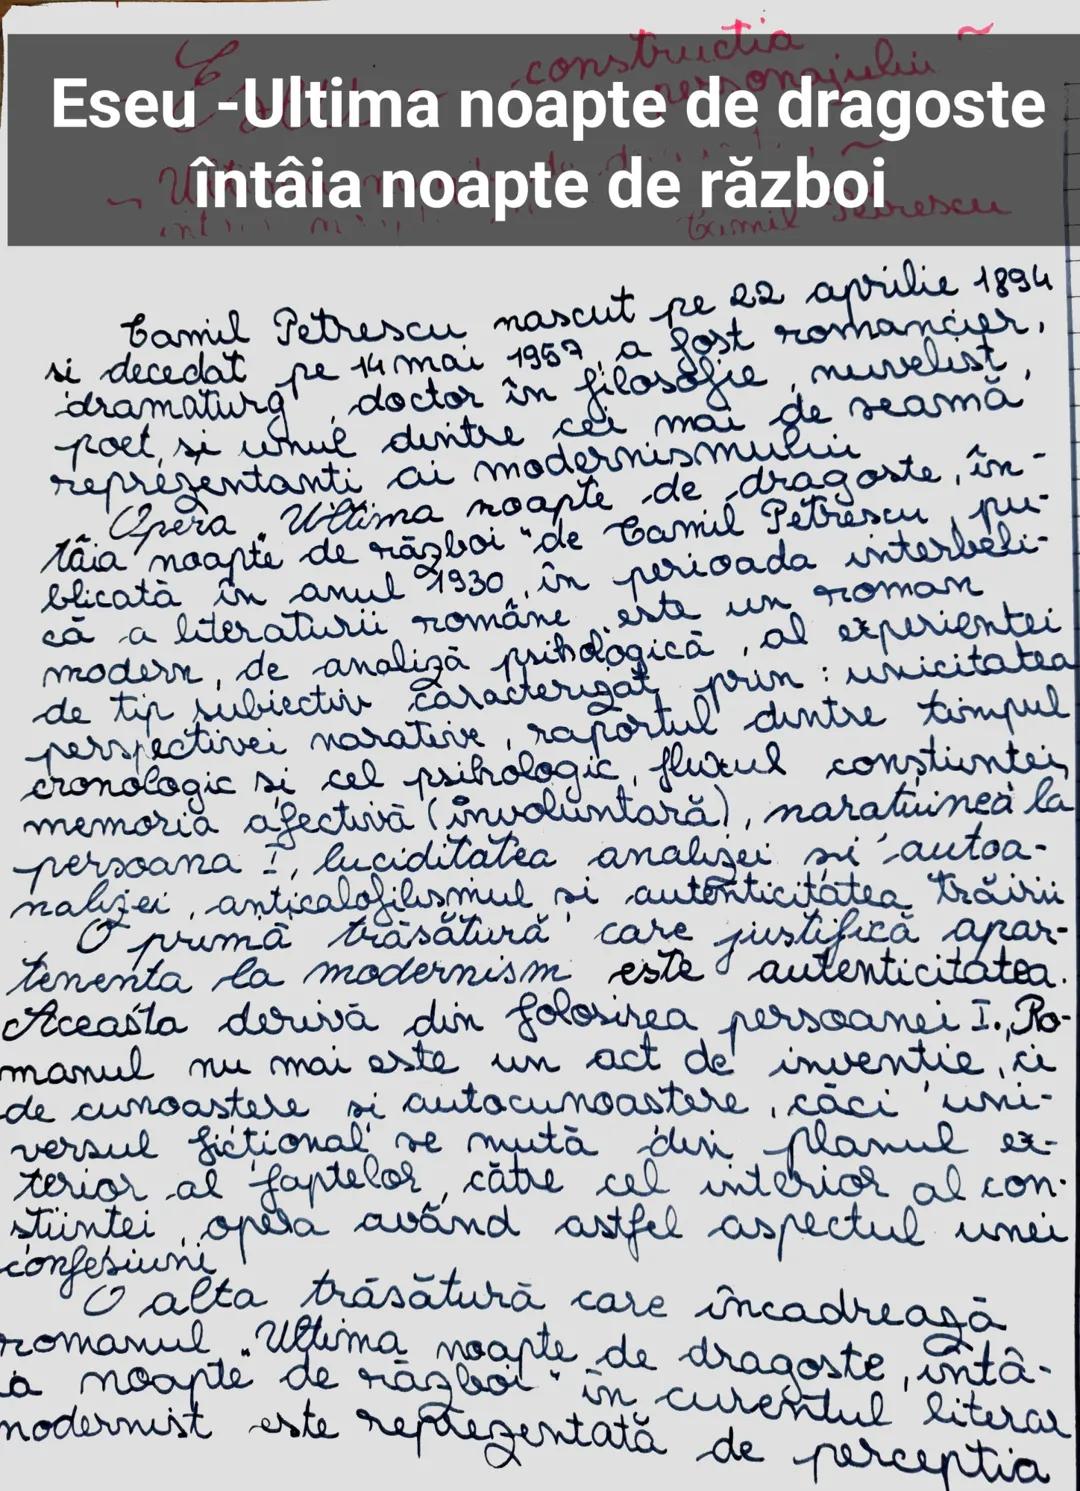 constructia
personajului
Eseu -Ultima noapte de dragoste
întâia noapte de război
Camil Petrescu
Camil Petrescu nascut pe 22 aprilie 1894
si decedat pe 14 mai 1957, a fost romancier,
dramaturg, doctor în filosofie, nuvelist,
poet, si unul dintre cei mai de seamă
reprezentanti ai modernismului
Opera "Ultima noapte de dragoste, în-
tâia noapte de război" de Camil Petrescu, pu-
blicată în anul 1930, în perioada interbeli-
că a literaturii române, este un roman
modern, de analiză psihologică, al experientei
de tip subiectiv caracterizat prin: unicitatea
perspectivei narative, raportul dintre timpul
cronologic si cel psihologic, fluxul constiintei,
memoria afectivă (involuntară), naratiunea la
persoana I, luciditatea analizei si autoa-
nalizei, anticalofilismul si autenticitatea trăirii
O primă trăsătură care justifică apar-
tenenta la modernism este autenticitatea.
Aceasta derivă din folosirea persoanei I., Ro-
manul nu mai este un act de inventie, ci
de cunoastere si autocunoastere, căci uni-
versul fictional se mută din planul ex-
terior al faptelor, către cel interior al con-
stiintei, opera având astfel aspectul unei
confesiuni
O alta trăsătură care încadrează
romanul "Ultima noapte de dragoste, întâ-
ia noapte de război" în curentul literar
modernist este reprezentată de perceptia